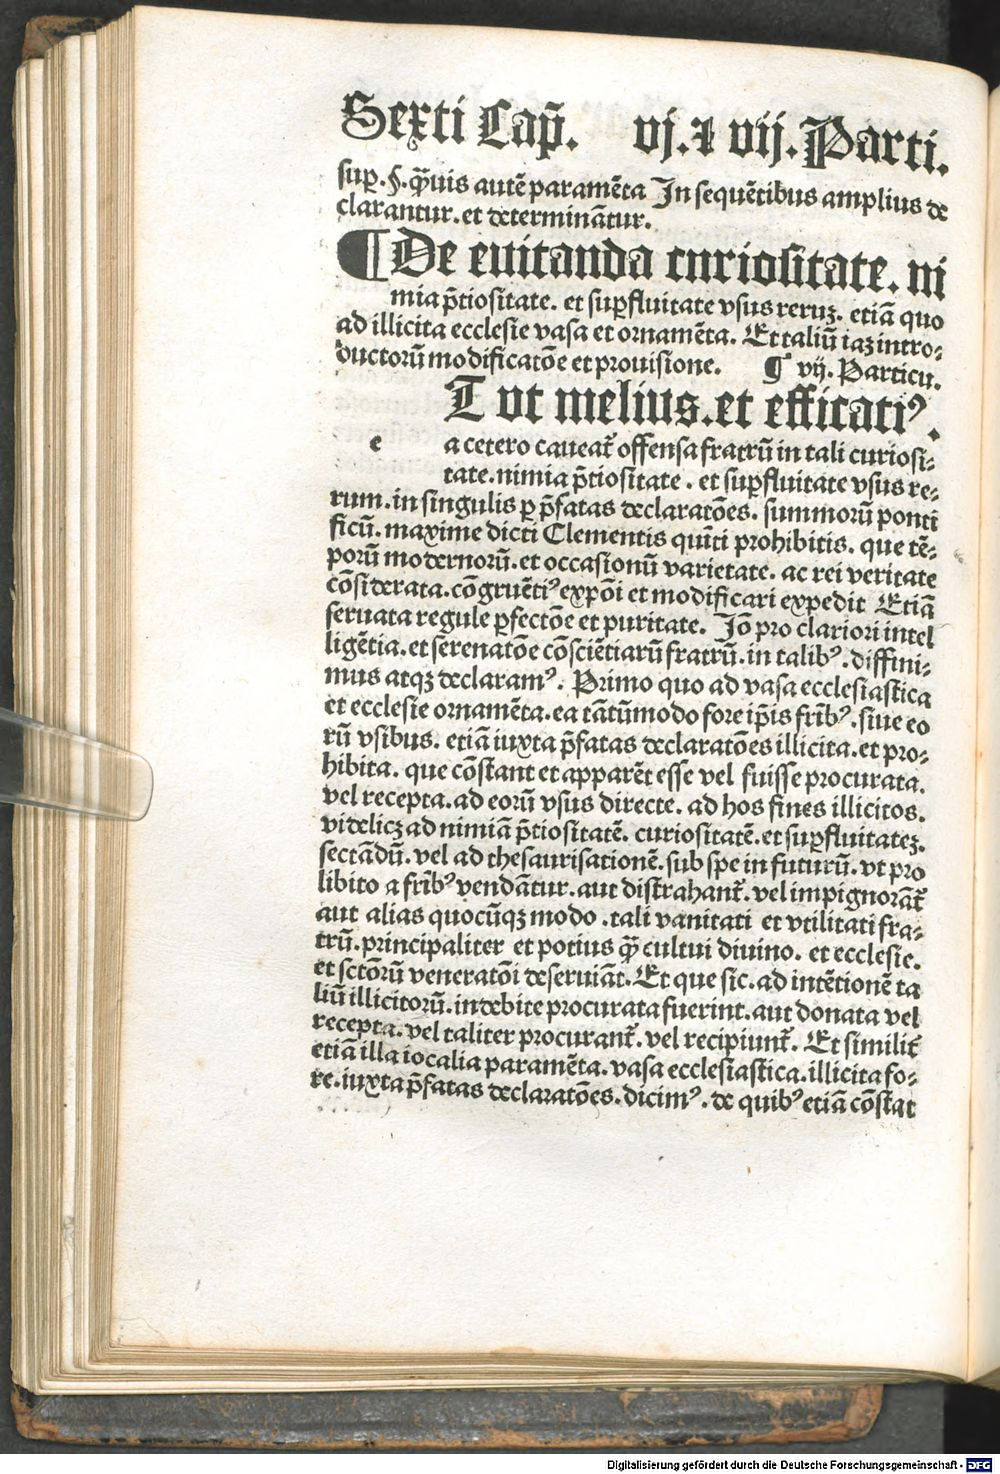 Sexti Cap̃. vj. ⁊ vij. Parti.
sup̱.§. q̃uis autẽ paramẽta In sequẽtibus amplius de
clarantur. et determinãtur.
¶ De euitanda curiositate. ni
mia p̃tiositate. et sup̱fluitate vsus reruꝫ. etiã quo
ad illicita ecclesie vasa et ornamẽta. Et taliũ iaꝫ intro⸗
ductorũ modificatõe et prouisione. ¶ vij. Particu.
T vt melius. et efficatiꝰ.
e a cetero caueat᷑ offensa fratrũ in tali curiosi⸗
tate. nimia p̃tiositate. et sup̱fluitate vsus re⸗
rum. in singulis p̱ p̃fatas declaratões. summorũ ponti
ficũ. maxime dicti Clementis quĩti prohibitis. que tẽ⸗
porũ modernorũ. et occasionũ varietate. ac rei veritate
cõsiderata. cõgruẽtiꝰ exp̱õi et modificari expedit Etiã
seruata regule p̱fectõe et puritate. Jõ pro clariori intel
ligẽtia. et serenatõe cõsciẽtiarũ fratrũ. in talibꝰ. diffini⸗
mus atqꝫ declaramꝰ. Primo quo ad vasa ecclesiastica
et ecclesie ornamẽta. ea tãtũmodo fore ip̃is fr̃ibꝰ. siue eo
rũ vsibus. etiã iuxta p̃fatas declaratões illicita. et pro⸗
hibita. que cõstant et apparẽt esse vel fuisse procurata.
vel recepta. ad eorũ vsus directe. ad hos fines illicitos.
videlicꝫ ad nimiã p̃tiositatẽ. curiositatẽ. et sup̱fluitateꝫ.
sectãdũ. vel ad thesaurisationẽ. sub spe in futurũ. vt pro
libito a fr̃ibꝰ vendãtur. aut distrahant᷑. vel impignorãt᷑
aut alias quocũqꝫ modo. tali vanitati et vtilitati fra⸗
trũ. principaliter et potius q̃ cultui diuino. et ecclesie.
et sctõrũ veneratõi deseruiãt. Et que sic. ad intẽtionẽ ta
liũ illicitorũ. indebite procurata fuerint. aut donata vel
recepta. vel taliter procurant᷑. vel recipiunt᷑. Et similit᷑
etiã illa iocalia paramẽta. vasa ecclesiastica. illicita fo⸗
re. iuxta p̃fatas declaratões. dicimꝰ. de quibꝰ etiã cõstat
Digitalisierung gefördert durch die Deutsche Forschungsgemeinschaft - DFG